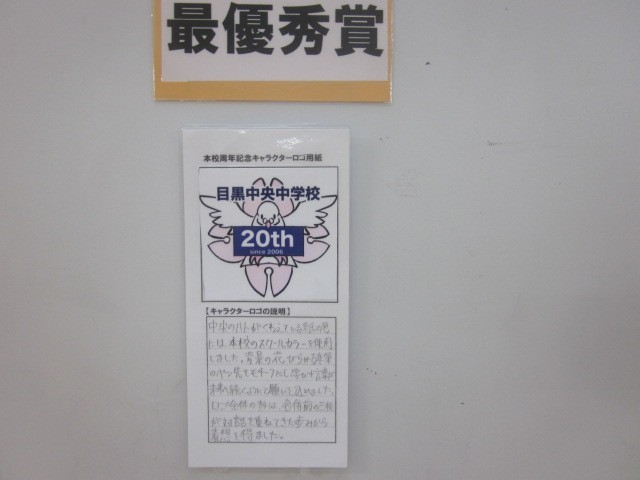 最優秀賞
本校周年記念キャラクターロゴ用紙
目黒中央中学校
20th
since 2006
【キャラクターロゴの説明】
中央のハトがくわえている紙の色
には、本校のスクールカラーを使用
しました。背景の花びらは
のペン先をモチーフにし、学び
未来へ続くようにと願いを込めました。
ロゴ全体の形は、合併前の三校
が対話を重ねてきた歩みから
着想を得ました。